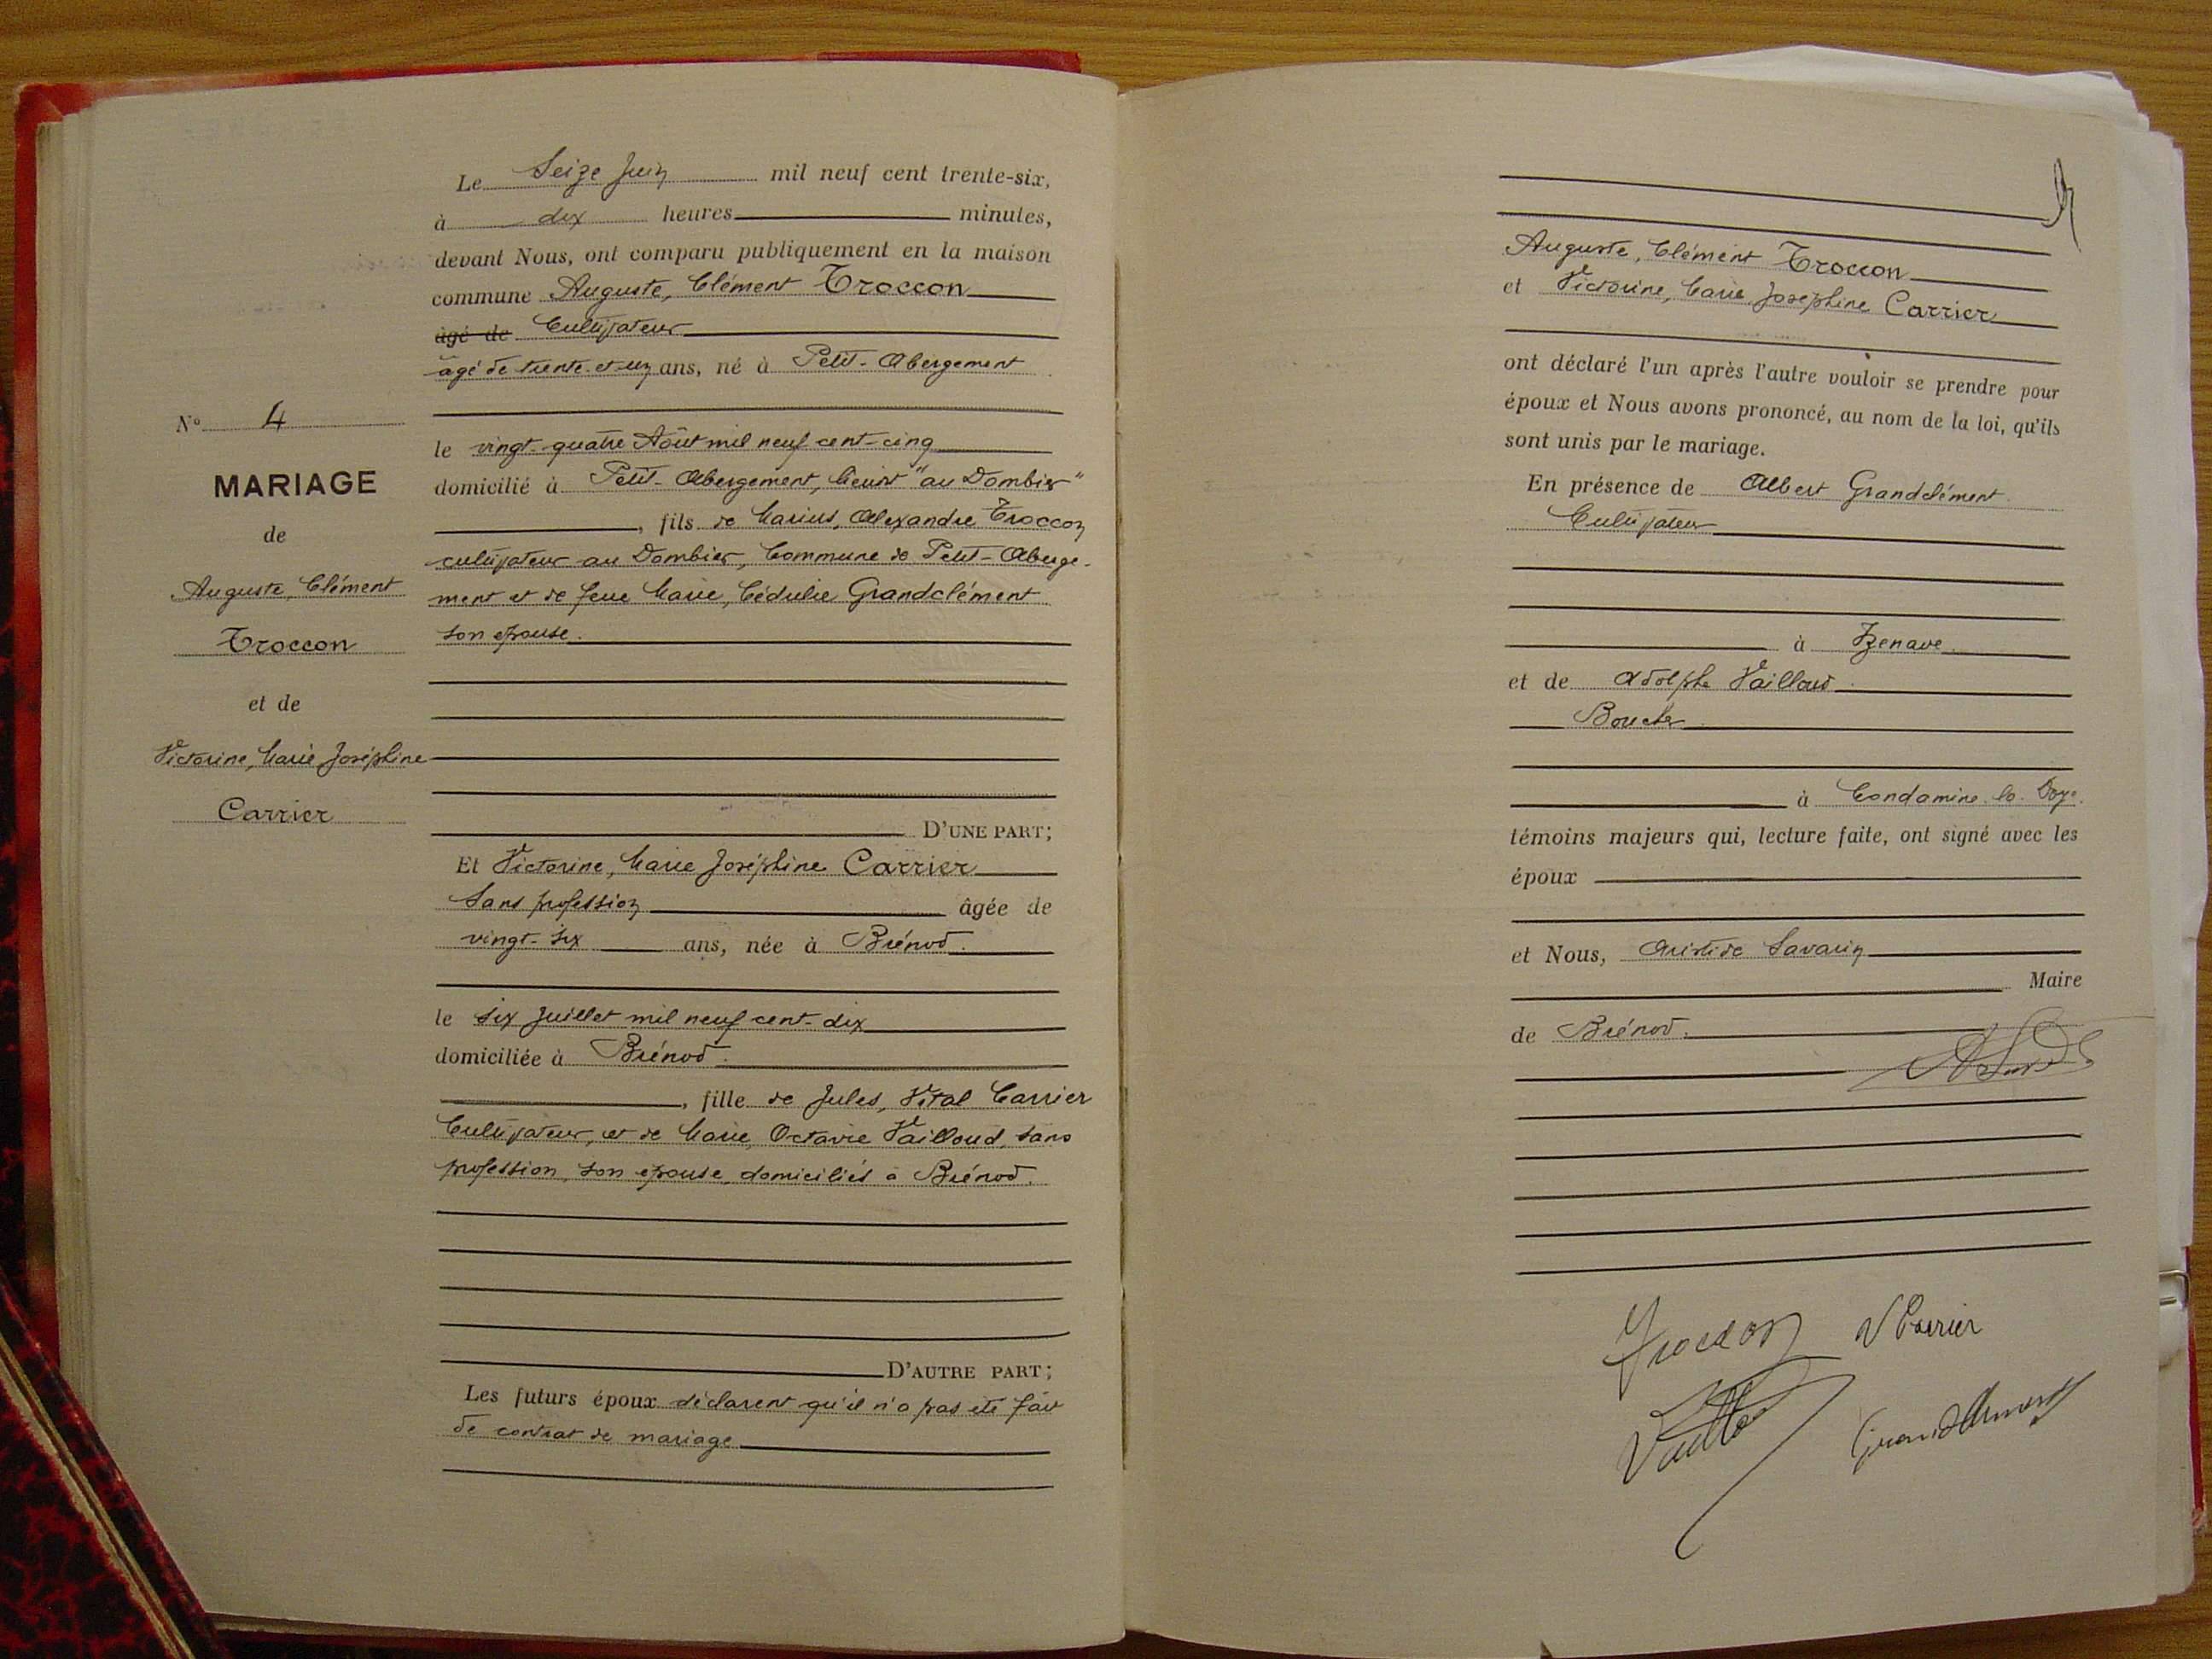 Le Seize Juin mil neuf cent trente-six,
à dix heures minutes,
devant Nous, ont comparu publiquement en la maison
commune Auguste, Clément Troccon
âgé de Cultivateur
âgé de trente-et-un ans, né à Petit-Abergement
le vingt-quatre Août mil neuf cent-cinq
domicilié à Petit-Abergement, lieudit "au Dombier"
, fils de Marius, Alexandre Troccon
cultivateur au Dombier, Commune de Petit-Aberge-
ment et de feue Marie, Cédulie Grandclément
son epouse.
D'UNE PART;
Et Victorine, Marie Joséphine Carrier
Sans profession âgée de
vingt-six ans, née à Brénod.
le six Juillet mil neuf cent-dix
domiciliée à Brénod.
, fille de Jules, Vital Carrier
Cultivateur, et de Marie, Octavie Vailloud, sans
profession, son epouse, domiciliés à Brénod.
D'AUTRE PART;
Les futurs époux déclarent qu'il n'a pas été fait
de contrat de mariage
No 4
MARIAGE
de
Auguste, Clément
Troccon
et de
Victorine, Marie Joséphine
Carrier
Auguste, Clément Troccon
et Victorine, Marie Joséphine Carrier
ont déclaré l'un après l'autre vouloir se prendre pour
époux et Nous avons prononcé, au nom de la loi, qu'ils
sont unis par le mariage.
En présence de Albert Grandclément
Cultivateur
à Izenave
et de Adolphe Vailloud.
Boucher
à Condamine-la-Doye.
témoins majeurs qui, lecture faite, ont signé avec les
époux
et Nous, Aristide Savarin
Maire
de Brénod.
Troccon V Carrier
Grandclément